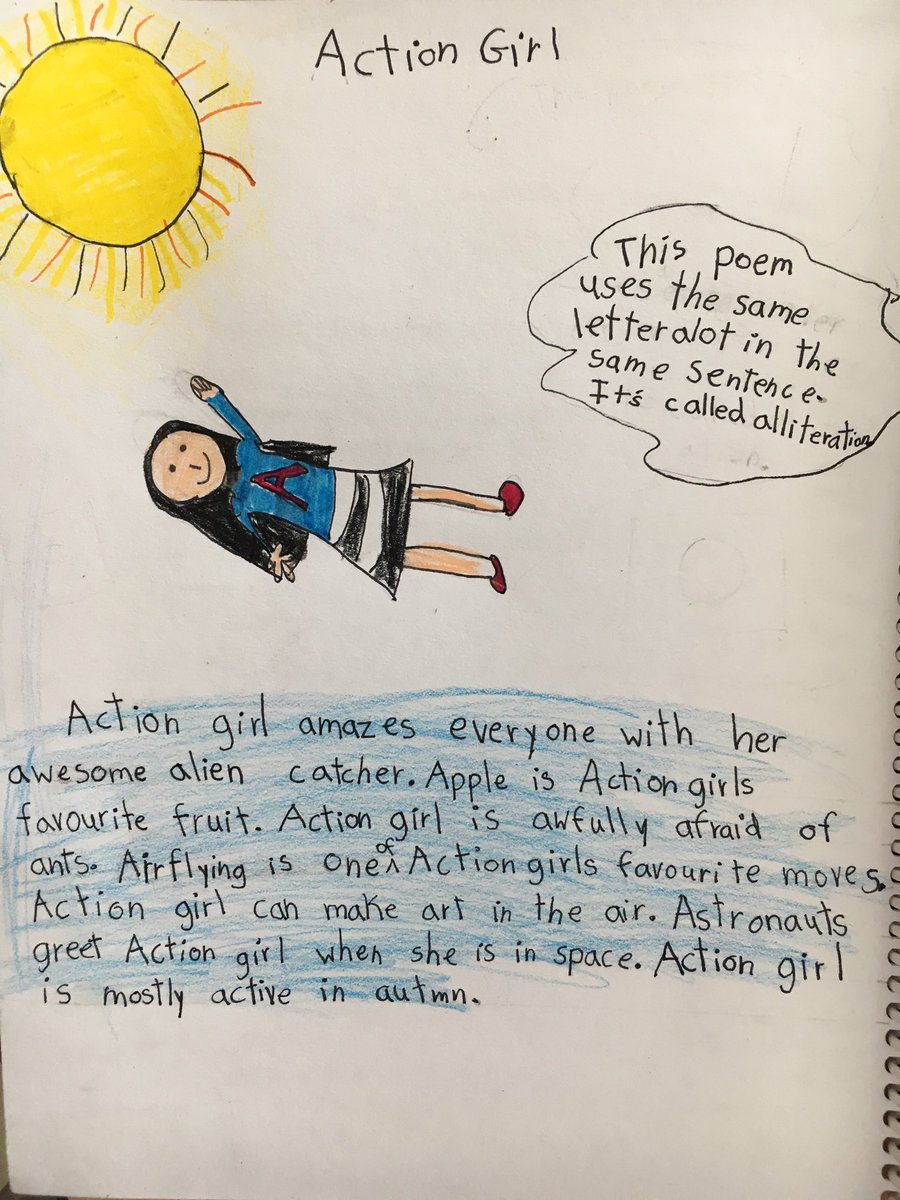 Action Girl
This poem
uses the same
letter alot in the
same sentence.
It's called alliteration
A
Action girl amazes everyone with her
awesome alien catcher. Apple is Action girls
favourite fruit. Action girl is awfully afraid of
ants. Airflying is one of Action girls favourite moves.
Action girl can make art in the air. Astronauts
greet Action girl when she is in space. Action girl
is mostly active in autmn.